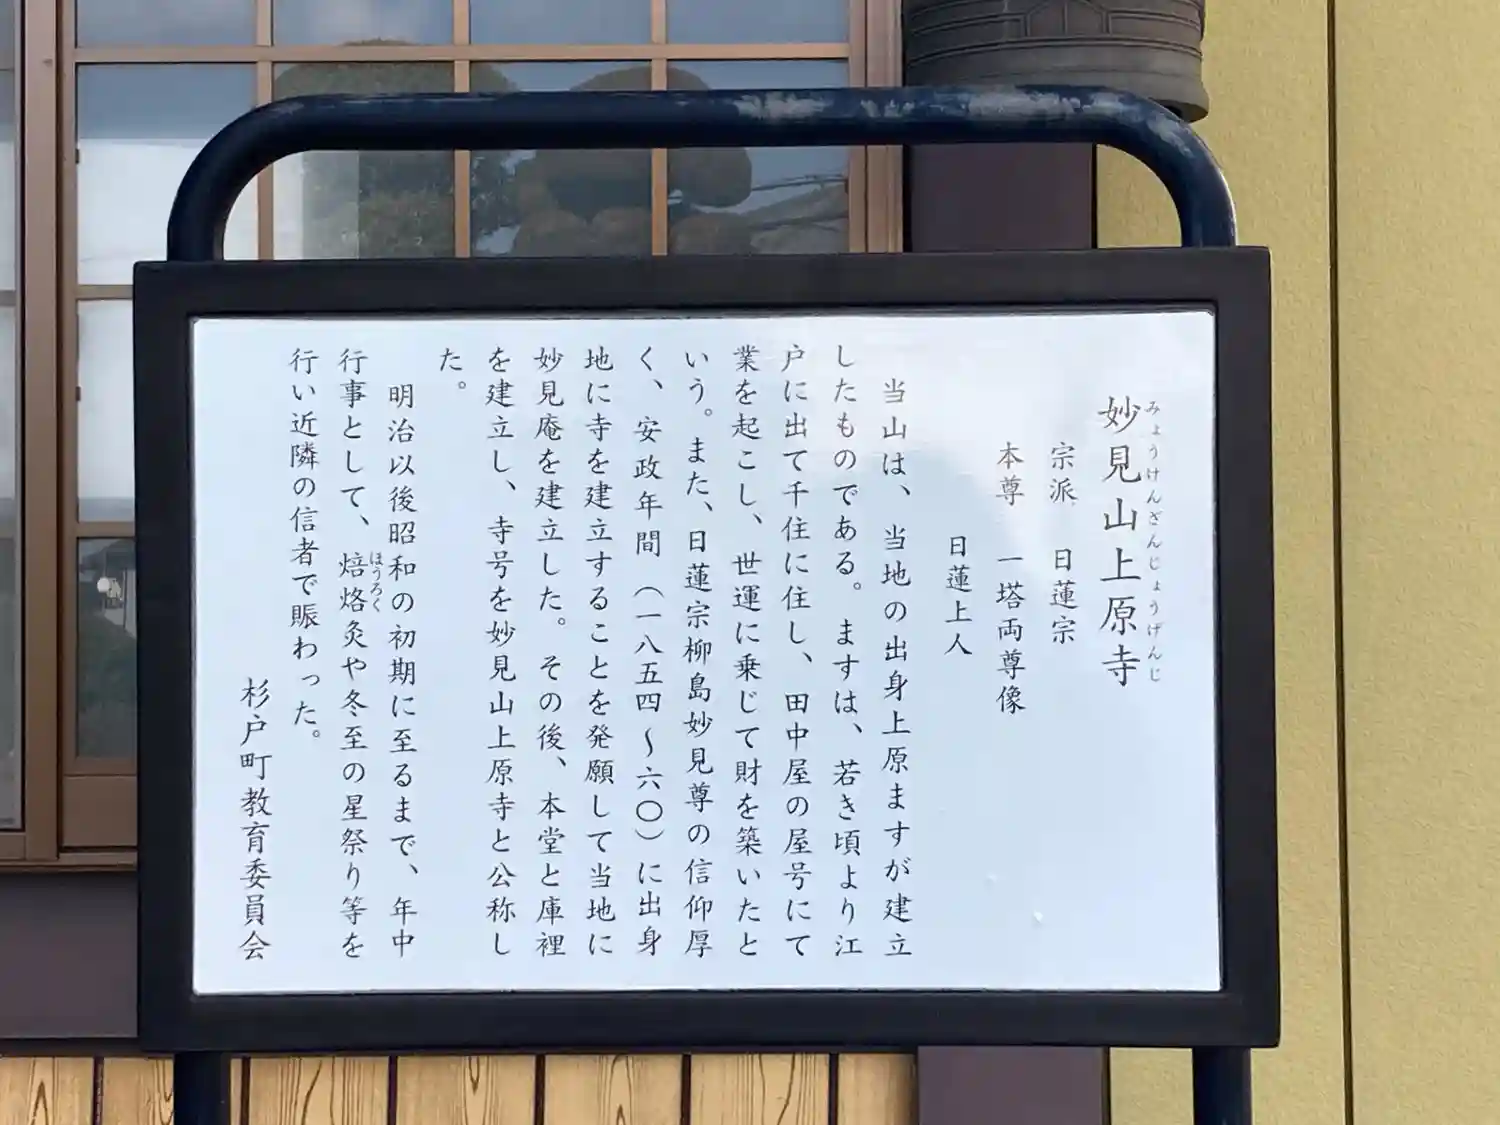 妙見山上原寺
みょうけんざんじょうげんじ
宗派　日蓮宗
本尊　一塔両尊像
日蓮上人
当山は、当地の出身上原ますが建立
したものである。ますは、若き頃より江
戸に出て千住に住し、田中屋の屋号にて
業を起こし、世運に乗じて財を築いたと
いう。また、日蓮宗柳島妙見尊の信仰厚
く、安政年間（一八五四～六〇）に出身
地に寺を建立することを発願して当地に
妙見庵を建立した。その後、本堂と庫裡
を建立し、寺号を妙見山上原寺と公称し
た。
明治以後昭和の初期に至るまで、年中
行事として、焙烙灸や冬至の星祭り等を
ほうろく
行い近隣の信者で賑わった。
杉戸町教育委員会